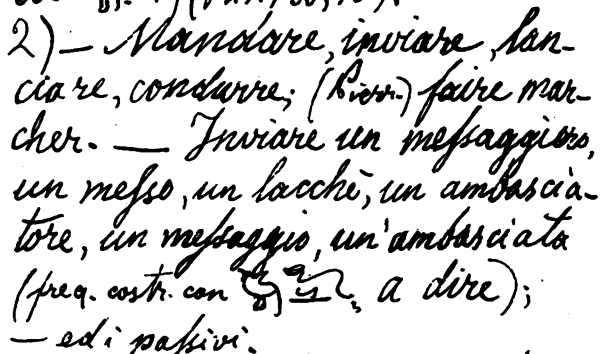 2) — Mandare, inviare, lan-
ciare, condurre; (Pierr.) faire mar-
cher. — Inviare un messaggiero,
un messo, un lacchè, un ambascia-
tore, un messaggio, un'ambasciata
(freq. costr. con a dire);
— ed i passivi.